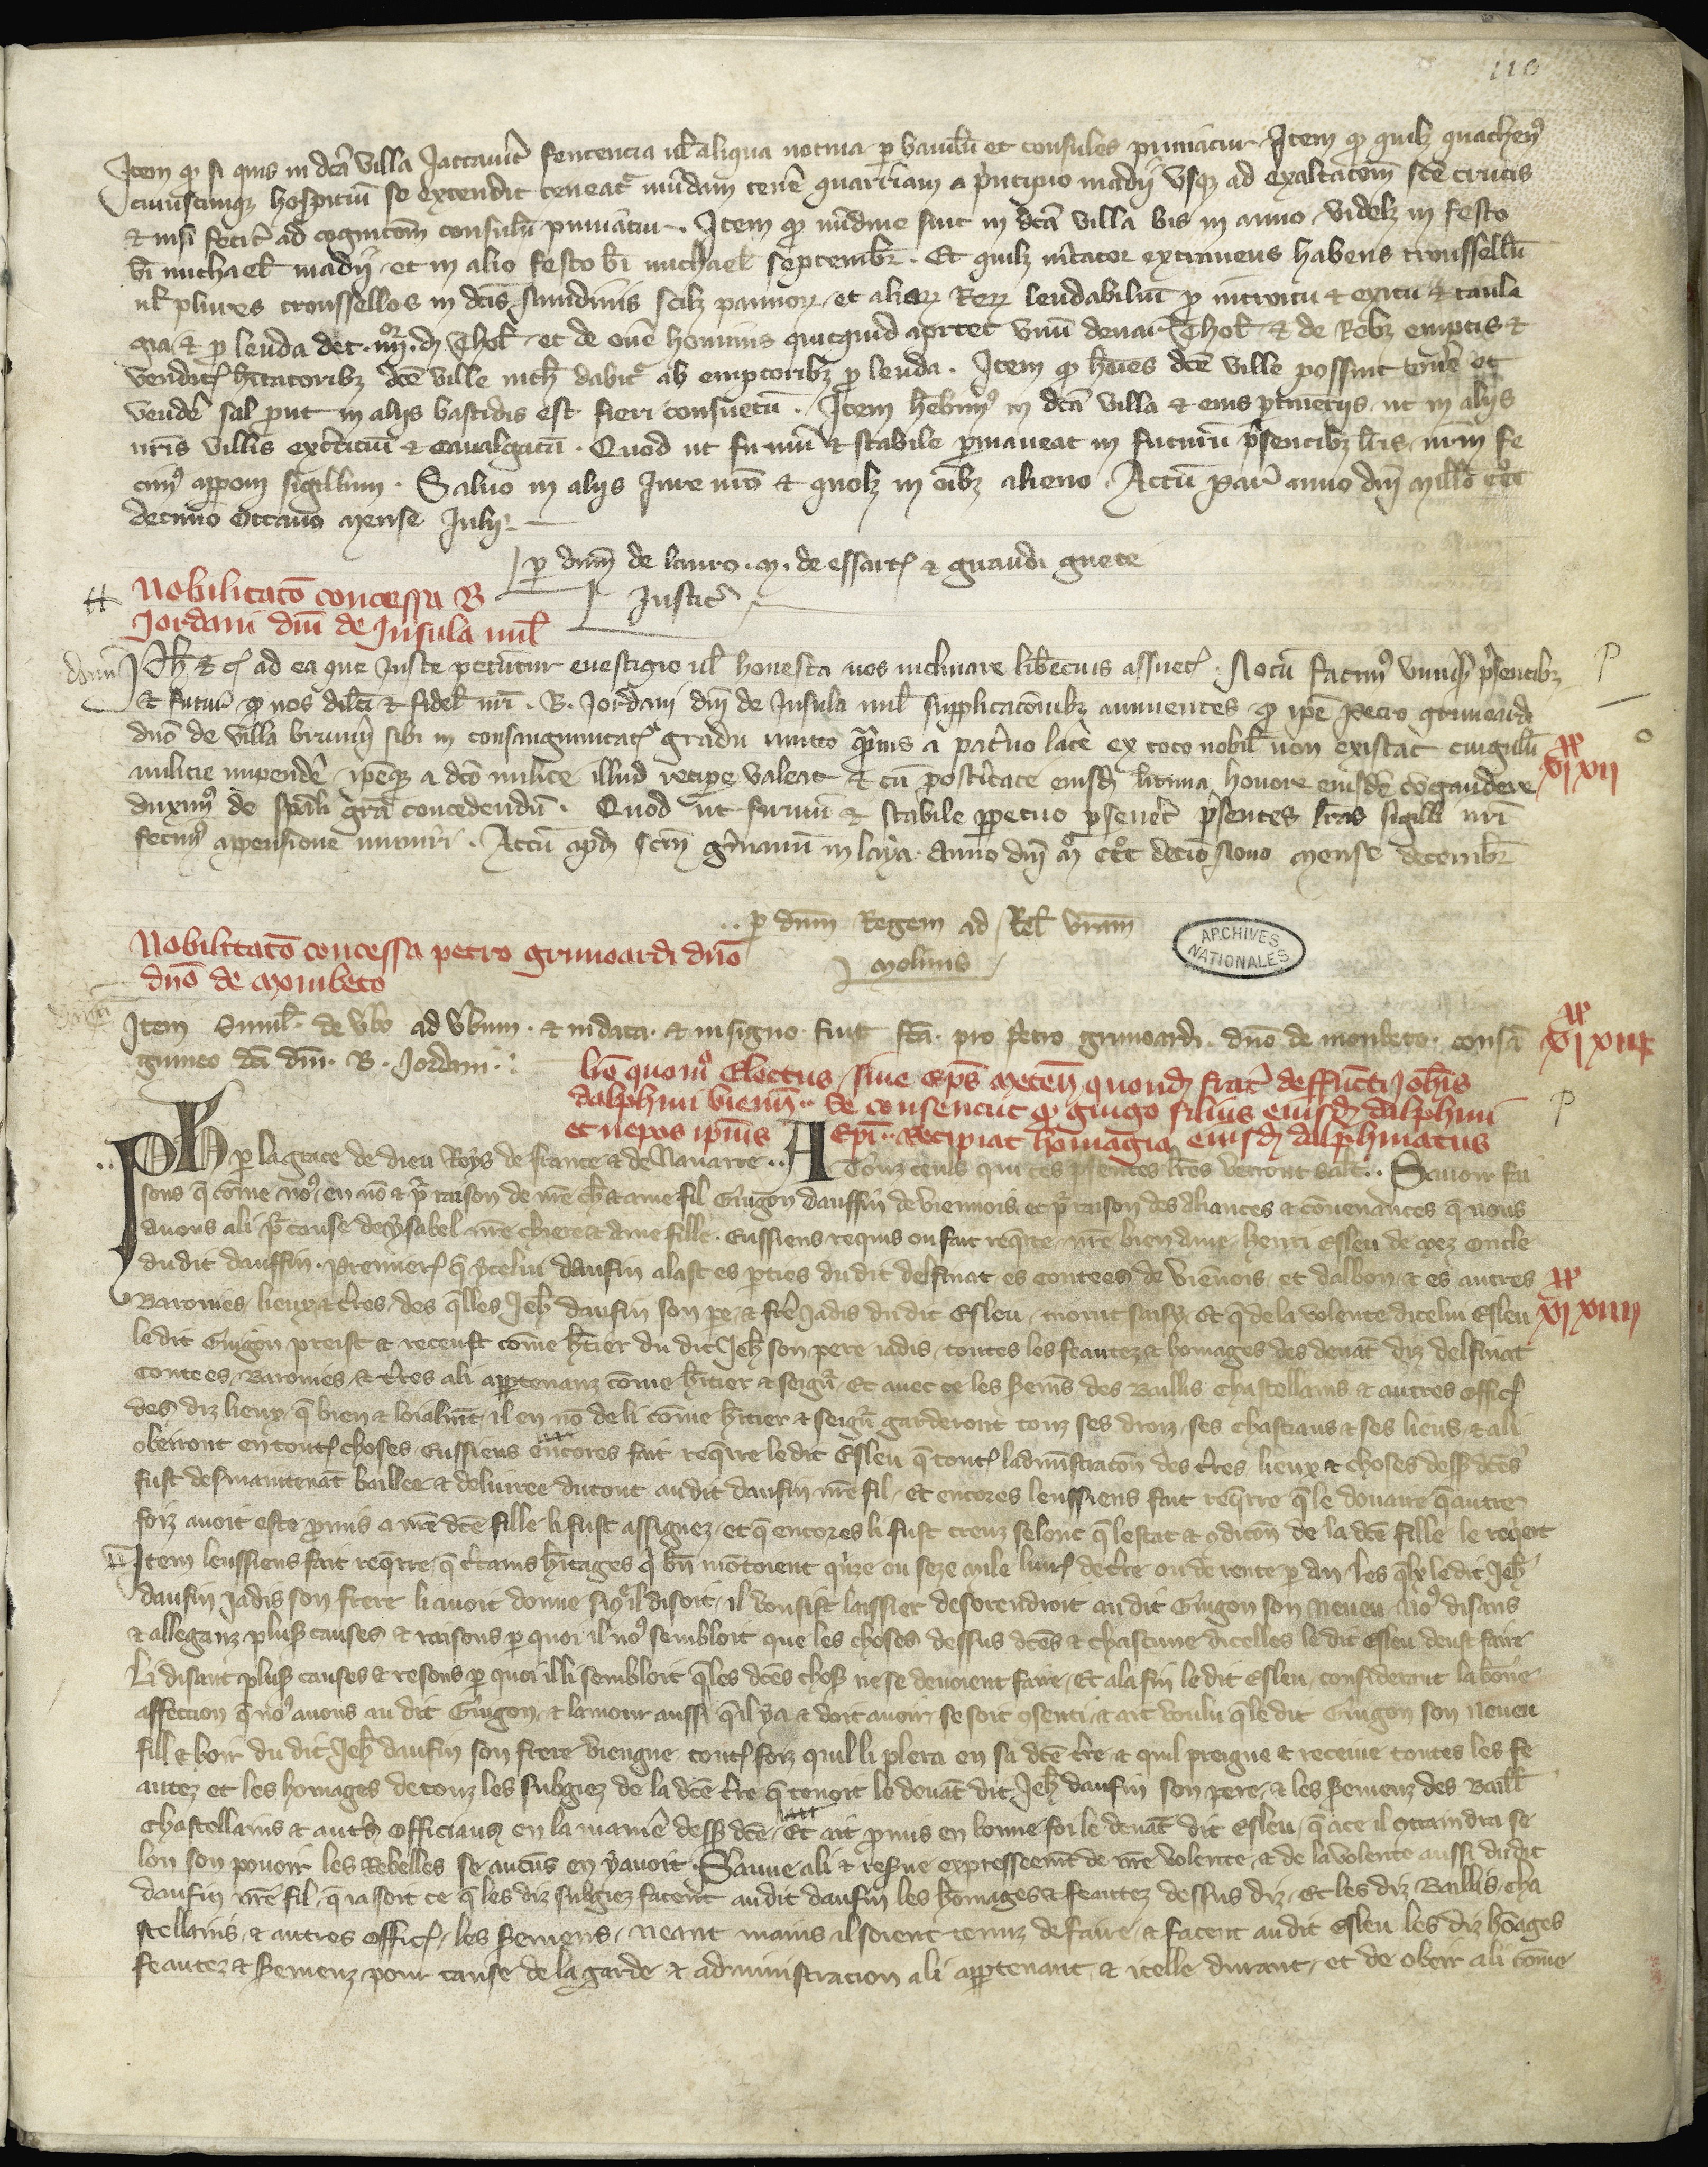 110
Item qͥ si quis in dcā villa Jactauit͛ sentencia ul̄ aliqua noctua ꝑ bauilū et consules puniatur Item qͥ quilꝫ quachenꝰ
cuiuscunqꝫ hospitiū se extendit teneat͛ mūdam tenē quarriam a pͥncipio madij vsqꝫ ad exaltacōem sce crucis
& nisi fecit͛ ad cognicōem consulū puniatur. Item qͥ nūdine sint in dcā villa bis in anno, videlꝫ in festo
bī michael̄ madij et in alio festo bī michael̄ septembr̄. Et quilꝫ mc̄ator extraneus habens troussellū
ul̄ plures troussellos in dcīs nundinis scilꝫ pannoꝝ, et aliaꝝ Reꝝ leudabiliū ꝓ introitu & exitu & taula
gia & ꝓ leuda det .iiij. d. Thol̄. et de onē hominis quicquid aportet vnū denar̄ Thol̄ & de Rebꝫ emptis &
vendit͛ h̄itatoribꝫ dcē ville nich̄ dabit͛ ab emptoribꝫ ꝓ leuda. Item qͥ hōies dcē ville possint emē et
vendē sal put in alijs bastidis est fieri consuetū. Item hēbimꝰ in dcā villa & eius ptinenciis ut in alijs
nr̄is villis exercitū & caualgatā. Quod ut firmū & stabile ꝑmaneat in futurū p̄sentibꝫ lr̄is nr̄m fe
cimꝰ apponi sigillum. Saluo in alijs Jure nr̄o & quolꝫ in oībꝫ alieno. Actū Par͛ anno dn̄i mill̄o ccc̄
decimo octauo mense Julij.
ꝑ dn̄m de lauro. M. de essart͛ & guaudi guete
Justic͛
Nobilitatō concessa B
Jordani dn̄i de Insula mil̄
Ph̄ &c͛ ad ea que Juste petūtur euestigio ul̄ honesta nos inclinare libēcius assuet͛. Notū facimꝰ vniuꝰ p̄sentibꝫ
& futur͛ qͥ nos dilc̄i & fidel̄ nr̄i .B. Jordani dn̄i de Insula mil̄ supplicacōnibꝫ annuentes qͥ ipē Petro grimoardi
dn̄o de villa brumͥ sibi in consanguinitat͛ gradu iuncto qͣmuis a pat͛no latē ex toto nobil̄ non existat cingulū
milicie impendē ipēqꝫ a dc̄o milite illud recipe valeat & cū posteritate eiusdꝫ ltima honore eiusdē congaudere
duximꝰ de spāli grā concedendū. Quod ut firmū & stabile ꝑpetuo ꝑseuet͛ p̄sentes lr̄as sigilli nr̄i
fecimꝰ appensione muniri. Actū apd sc̄m gͥmanū in laya anno dn̄i m̄ ccc̄ decio nono mense decembr̄
vi xvii
ꝑ dn̄m Regem ad Rel̄ vr̄am
molinis
ARCHIVES
NATIONALES
Nobilitatō concessa petro grimoardi dn̄o
dn̄o de monbeto
Item Simil̄. de vbo ad vbum. & in data. & in signo. fuit fc̄a. pro Petro grimoardi. dn̄o de monbeto. consā
guineo dcī dn̄i .B. Jordani.
xi xiii
lrē quomͦ Electus, siue Epͥs meten̄ quondꝫ frat͛ deffuncti Johīs
dalphini vienn̄.. se consencit qͥ guigo filius eiusdꝫ dalphini
et nepos ipius Epī.. Recipiat homagia eiusdꝫ dalphinatus
Ph̄ ꝑ la grace de dieu Roys de france & de Nauarre.. A Touz ceuls qui ces p̄sentes lr̄es verront sal̄t.. Sauoir fai
sons q̄ cōme noꝰ, en nō & pͬ raison de nr̄e ch̄ & ame fil Guigon dauffin de viennois, et pͬ raison des aliances & conuenances q̄ nous
auons a li pͬ cause de ysabel nr̄e chiere & ame fille. Eussiens requis ou fait reqͥrre nr̄e bien ame, henri esleu de mez oncle
du dit dauffin. Premier͛ q̄ ycelui daufin alast es ꝑties du dit delfinat es contees de viēnois, et dalbon, & es autres
Baronies, lieux & tr̄es, des q̄lles Jeh̄ daufin son pe, & frēe Jadis du dit Esleu, morut saisy, Et q̄ de la volente dicelui Esleu
xi xiiii
le dit Guigon preist & receust cōme h̄tier du dit Jeh̄ son pere iadis, toutes les feautez & homages des deuāt diz delfinat
Contees, Baronies, & tr̄es a li apꝑtenanz cōme h̄itier & seigr̄, Et auec ce les Sermēs des Baillis chastellains & autres offic͛
des diz lieux, q̄ bien & loialmēt il en nō de li cōme h̄itier & seigr̄ garderont touz ses droiz, ses chastiaus & ses lieus, & a li
obeiront en tout͛ choses. Eussiens encores fait reqͥrre le dit Esleu q̄ tout͛ ladmīstracōn des tr̄es, lieux & choses dess dc̄es
fust des maintenāt baillee & deliuree du tout au dit daufin nr̄e fil, Et encores leussiens fait reqͥrre q̄ le douaire q̄ autre
foiz auoit este ꝓmis a nr̄e dcē fille li fust assignez, et q̄ encores li fust creuz selonc q̄ lestat & ꝯdicōn de la dcē fille le reqͥert
Item leussiens fait reqͥrre, q̄ c̄tains h̄itages q̄ bn̄ mōtoient qͥnze ou seze mile liur͛ de tr̄e ou de rente ꝑ an, les qͥlx le dit Jeh̄
daufin Jadis son frere li auoit donne si qͥl disoit, il vousist laissier desorendroit au dit Guigon son neueu, Noꝰ disans
& alleganz plusꝰ causes & raisons ꝑ quoi il noꝰ sembloit que les choses dessus dc̄es & chascune dicelles le dit Esleu deust faire
Li disant plusꝰ causes & resons ꝑ quoi il li sembloit q̄ les dc̄es chosꝰ ne se deuoient faire, Et ala fin le dit Esleu, considerant la bōne
affection q̄ noꝰ auons au dit Guigon, & lamour aussi q̄ il y a & doit auoir, se soit ꝯsenti, & ait voulu q̄ le dit Guigon son neueu
fill & hoir du dit Jeh̄ daufin son frere viengne tout͛ foiz quil li plera en sa dcē tr̄e & quil preigne & receiue toutes les fe
autez et les homages de touz les subgiez de la dcē tr̄e q̄ tenoit le deuāt dit Jeh̄ daufin son pere, & les Sermenz des Baill̄
chastellains & autꝰs officiaus en la maniē dess dcē, Et ait ꝓmis en bonne foi le deuāt dit Esleu, q̄ a ce il ꝯtraindra se
lon son pouoir les Rebelles se aucūs en y auoit. Sauue a li & resꝰue expresseemt de nr̄e volente, & de la volente aussi du dit
daufin nr̄e fil, q̄ ia soit ce q̄ les diz subgiez facent au dit daufin les homages & feautez dessus diz, Et les diz Baillis, cha
stellains, & autres offic͛, les Sermens, neant mains il soient tenuz de faire, & facent au dit Esleu les diz hōages
feautez & Sermenz pour cause de la garde & administracion a li apꝑtenant, & icelle durant, et de obeir a li cōme